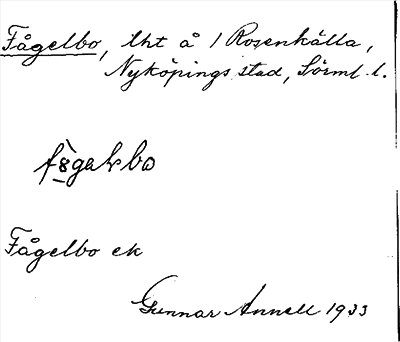 Fågelbo, lht å 1 Rosenkälla,
Nyköpings stad, Sörml. l.
Fågelbo ek
Gunnar Annell 1933